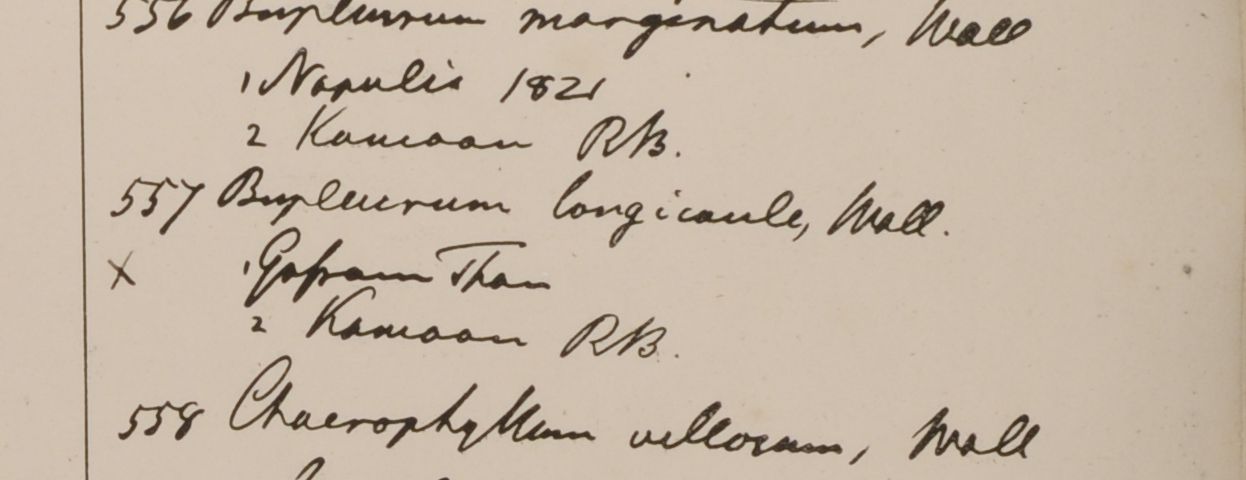 556 Bupleurum marginatum, Wall
1 Napulia 1821
2 Kamaon RB.
557 Bupleurum longicaule, Wall.
x 1 Gosam Than
2 Kamaon RB.
558 Chaerophyllum villosum, Wall